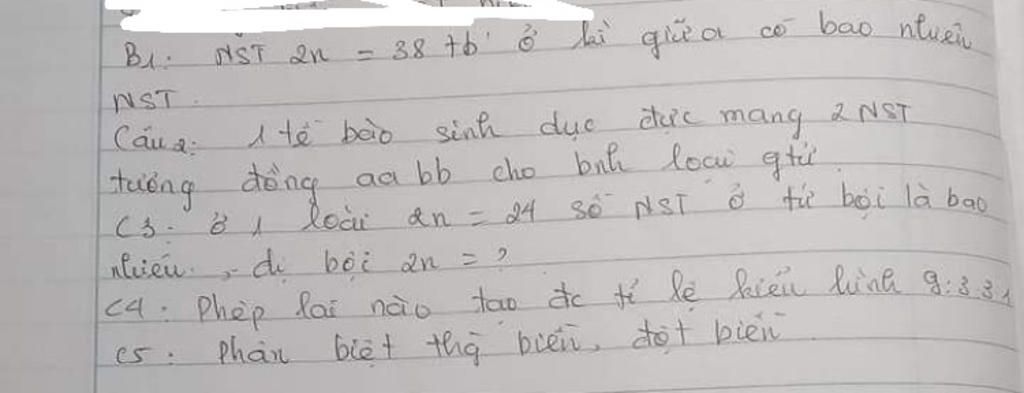 B1: NST 2n = 38 tb ở kì giữa có bao nhiêu
NST.
Câu 2: 1 tế bào sinh dục đực mang 2 NST
tương đồng aa bb cho bnh loại gtử.
C3. ở 1 loài 2n = 24 số NST ở tứ bội là bao
nhiêu., dị bội 2n = ?
C4: Phép lai nào tạo đc tỉ lệ kiểu hình 9:3:3:1
C5: Phân biệt thg biến, đột biến